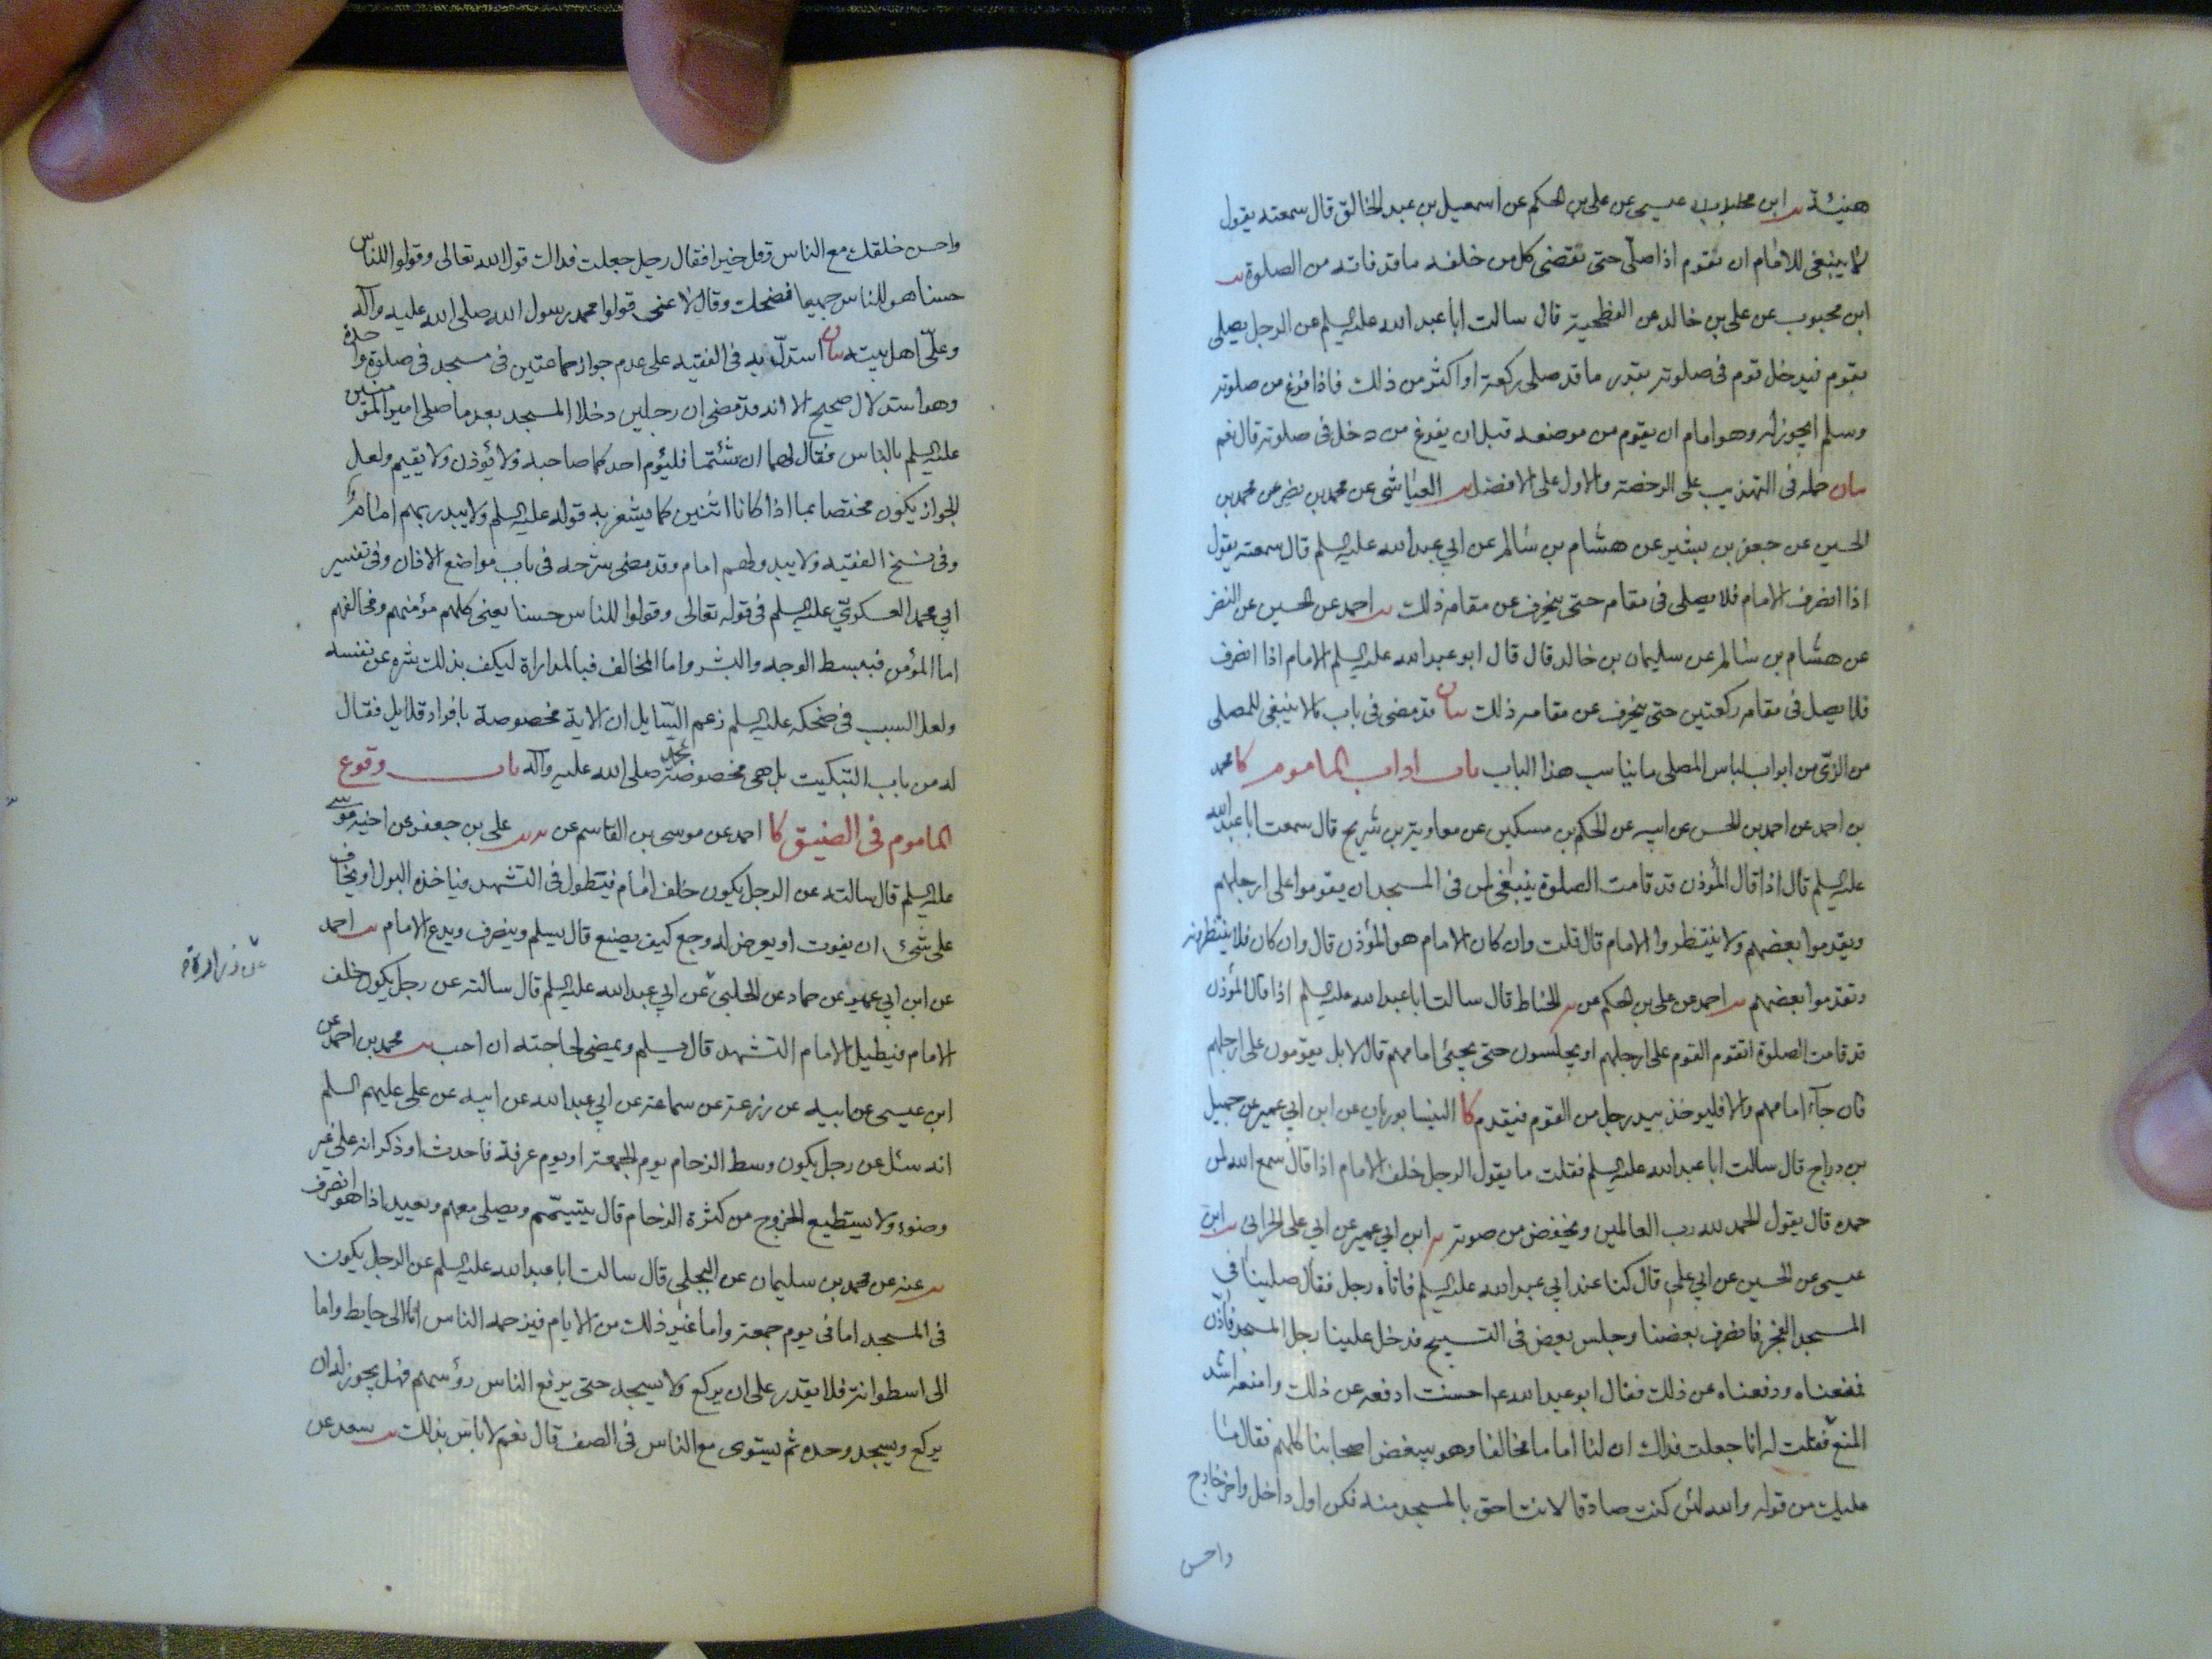 هنيئة يب ابن محبوب عن عيسى عن على بن الحكم عن اسمعيل بن عبد الخالق قال سمعته يقول
لا ينبغى للامام ان يقوم اذا صلّى حتى يقضى كل من خلفه ما قد فاته من الصلوة يب
ابن محبوب عن على بن خالد عن الفطحية قال سالت ابا عبد الله عليه السلم عن الرجل يصلى
بقوم فيدخل قوم فى صلوته بقدر ما قد صلى ركعة او اكثر من ذلك فاذا فرغ من صلوته
وسلم ايجوز له وهو امام ان يقوم من موضعه قبل ان يفرغ من دخل فى صلوته قال نعم
بيان حمله فى التهذيب على الرخصة والاول على الافضل يب العياشى عن محمد بن نصر عن محمد بن
الحسين عن جعفر بن بشير عن هشام بن سالم عن ابي عبد الله عليه السلم قال سمعته يقول
اذا انصرف الامام فلا يصلى فى مقام حتى ينحرف عن مقامه ذلك يب احمد عن الحسين عن النضر
عن هشام بن سالم عن سليمان بن خالد قال قال ابو عبد الله عليه السلم الامام اذا انصرف
فلا يصل فى مقامه ركعتين حتى ينحرف عن مقامه ذلك بيان قد مضى فى باب ما لا ينبغى للمصلى
من الزىّ من ابواب لباس المصلى ما يناسب هذا الباب باب اداب الماموم كا محمد
بن احمد عن احمد بن الحسن عن ابيه عن الحكم بن مسكين عن معاوية بن شريح قال سمعت ابا عبد الله
عليه السلم قال اذا قال المؤذن قد قامت الصلوة ينبغى لمن فى المسجد ان يقوموا على ارجلهم
ويقدموا بعضهم ولا ينتظروا الامام قال قلت وان كان الامام هو المؤذن قال وان كان فلا ينتظرونه
وتقدموا بعضهم يب احمد عن على بن الحكم عن الحناط قال سالت ابا عبد الله عليه السلم اذا قال المؤذن
قد قامت الصلوة ايقوم القوم على ارجلهم او يجلسون حتى يجئ امامهم قال لا بل يقومون على ارجلهم
فان جآء امامهم والا فليوخذ بيد رجل من القوم فيقدم كا النيسابوريان عن ابن ابي عمير عن جميل
بن دراج قال سالت ابا عبد الله عليه السلم فقلت ما يقول الرجل خلف الامام اذا قال سمع الله لمن
حمده قال يقول الحمد لله رب العالمين ويخفض من صوته يه ابن ابي عمير عن ابي على الحرانى يب ابن
عيسى عن الحسين عن ابي على قال كنا عند ابي عبد الله عليه السلم فاتاه رجل فقال صلينا فى
المسجد الفجر فانصرف بعضنا وجلس بعض فى التسبيح فدخل علينا رجل المسجد فاذن
فمنعناه ودفعناه عن ذلك فقال ابو عبد الله ع احسنت ادفعه عن ذلك وامنعه اشد
المنع فقلت له انا جعلت فداك ان لنا اماما مخالفا وهو يبغض اصحابنا كلهم فقال ما
عليك من قوله والله لئن كنت صادقا لانت احق بالمسجد منه فكن اول داخل واخر خارج
واحسن
واحسن خلقك مع الناس وقل خيرا فقال رجل جعلت فداك قول الله تعالى وقولوا للناس
حسنا هو للناس جميعا فضحك وقال لا عنى قولوا محمد رسول الله صلى الله عليه وآله
وعلى اهل بيته بيان استدلّ به فى الفقيه على عدم جواز جماعتين فى مسجد فى صلوة واحدة
وهو استدلال صحيح الا انه قد مضى ان رجلين دخلا المسجد بعد ما صلى امير المؤمنين
عليه السلم بالناس فقال لهما ان شئتما فليؤم احدكما صاحبه ولا يؤذن ولا يقيم ولعل
الجواز يكون مختصا بما اذا كانا اثنين كما يشعر به قوله عليه السلم ولا يبدر بهم امام
وفى نسخ الفقيه ولا يبدو لهم امام وقد مضى شرحه فى باب مواضع الاذان وفى تفسير
ابي محمد العسكرىّ عليه السلم فى قوله تعالى وقولوا للناس حسنا يعنى كلهم مؤمنهم ومخالفهم
اما المؤمن فببسط الوجه والبشر واما المخالف فبالمداراة ليكف بذلك شره عن نفسه
ولعل السبب فى ضحكه عليه السلم زعم السّايل ان الاية مخصوصة بافراد قلايل فقال
له من باب التبكيت بل هى مخصوصة بمحمد صلى الله عليه وآله باب وقوع
الماموم فى الضيق كا احمد عن موسى بن القاسم عن يه يب على بن جعفر عن اخيه موسى
عليه السلم قال سالته عن الرجل يكون خلف امام فيتطول فى التشهد فياخذه البول او يخاف
على شئ ان يفوت او يعرض له وجع كيف يصنع قال يسلم وينصرف ويدع الامام يب احمد
عن ابن ابي عمير عن حماد عن الحلبى عن ابي عبد الله عليه السلم قال سالته عن رجل يكون خلف
عن زرارة
الامام فيطيل الامام التشهد قال يسلم ويمضى لحاجته ان احب يب محمد بن احمد عن
ابن عيسى عن ابيه عن زرعة عن سماعة عن ابي عبد الله عن ابيه عن على عليهم السلم
انه سئل عن رجل يكون وسط الزحام يوم الجمعة او يوم عرفة فاحدث او ذكر انه على غير
وضوء ولا يستطيع الخروج من كثرة الزحام قال يتيمّم ويصلى معهم ويعيد اذا هو انصرف
يب عنه عن محمد بن سليمان عن البجلى قال سالت ابا عبد الله عليه السلم عن الرجل يكون
فى المسجد اما فى يوم جمعة واما غير ذلك من الايام فيزحمه الناس اما الى حايط واما
الى اسطوانة فلا يقدر على ان يركع ولا يسجد حتى يرفع الناس رؤسهم فهل يجوز له ان
يركع ويسجد وحده ثم يستوى مع الناس فى الصف قال نعم لا باس بذلك يب سعد عن